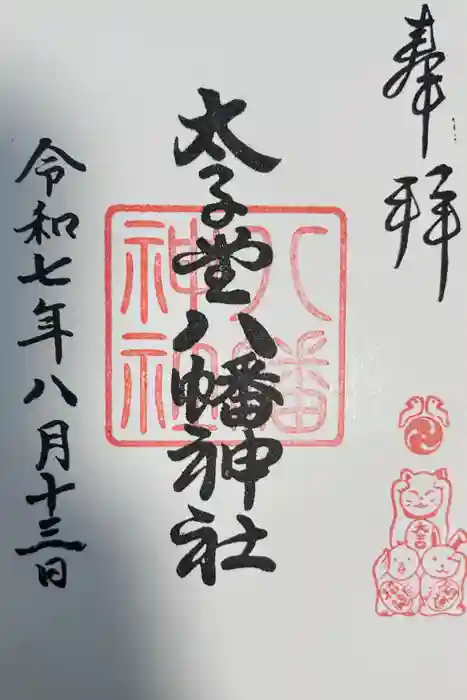 奉拝
太子堂八幡神社
八幡
神社
大吉
令和七年八月十三日